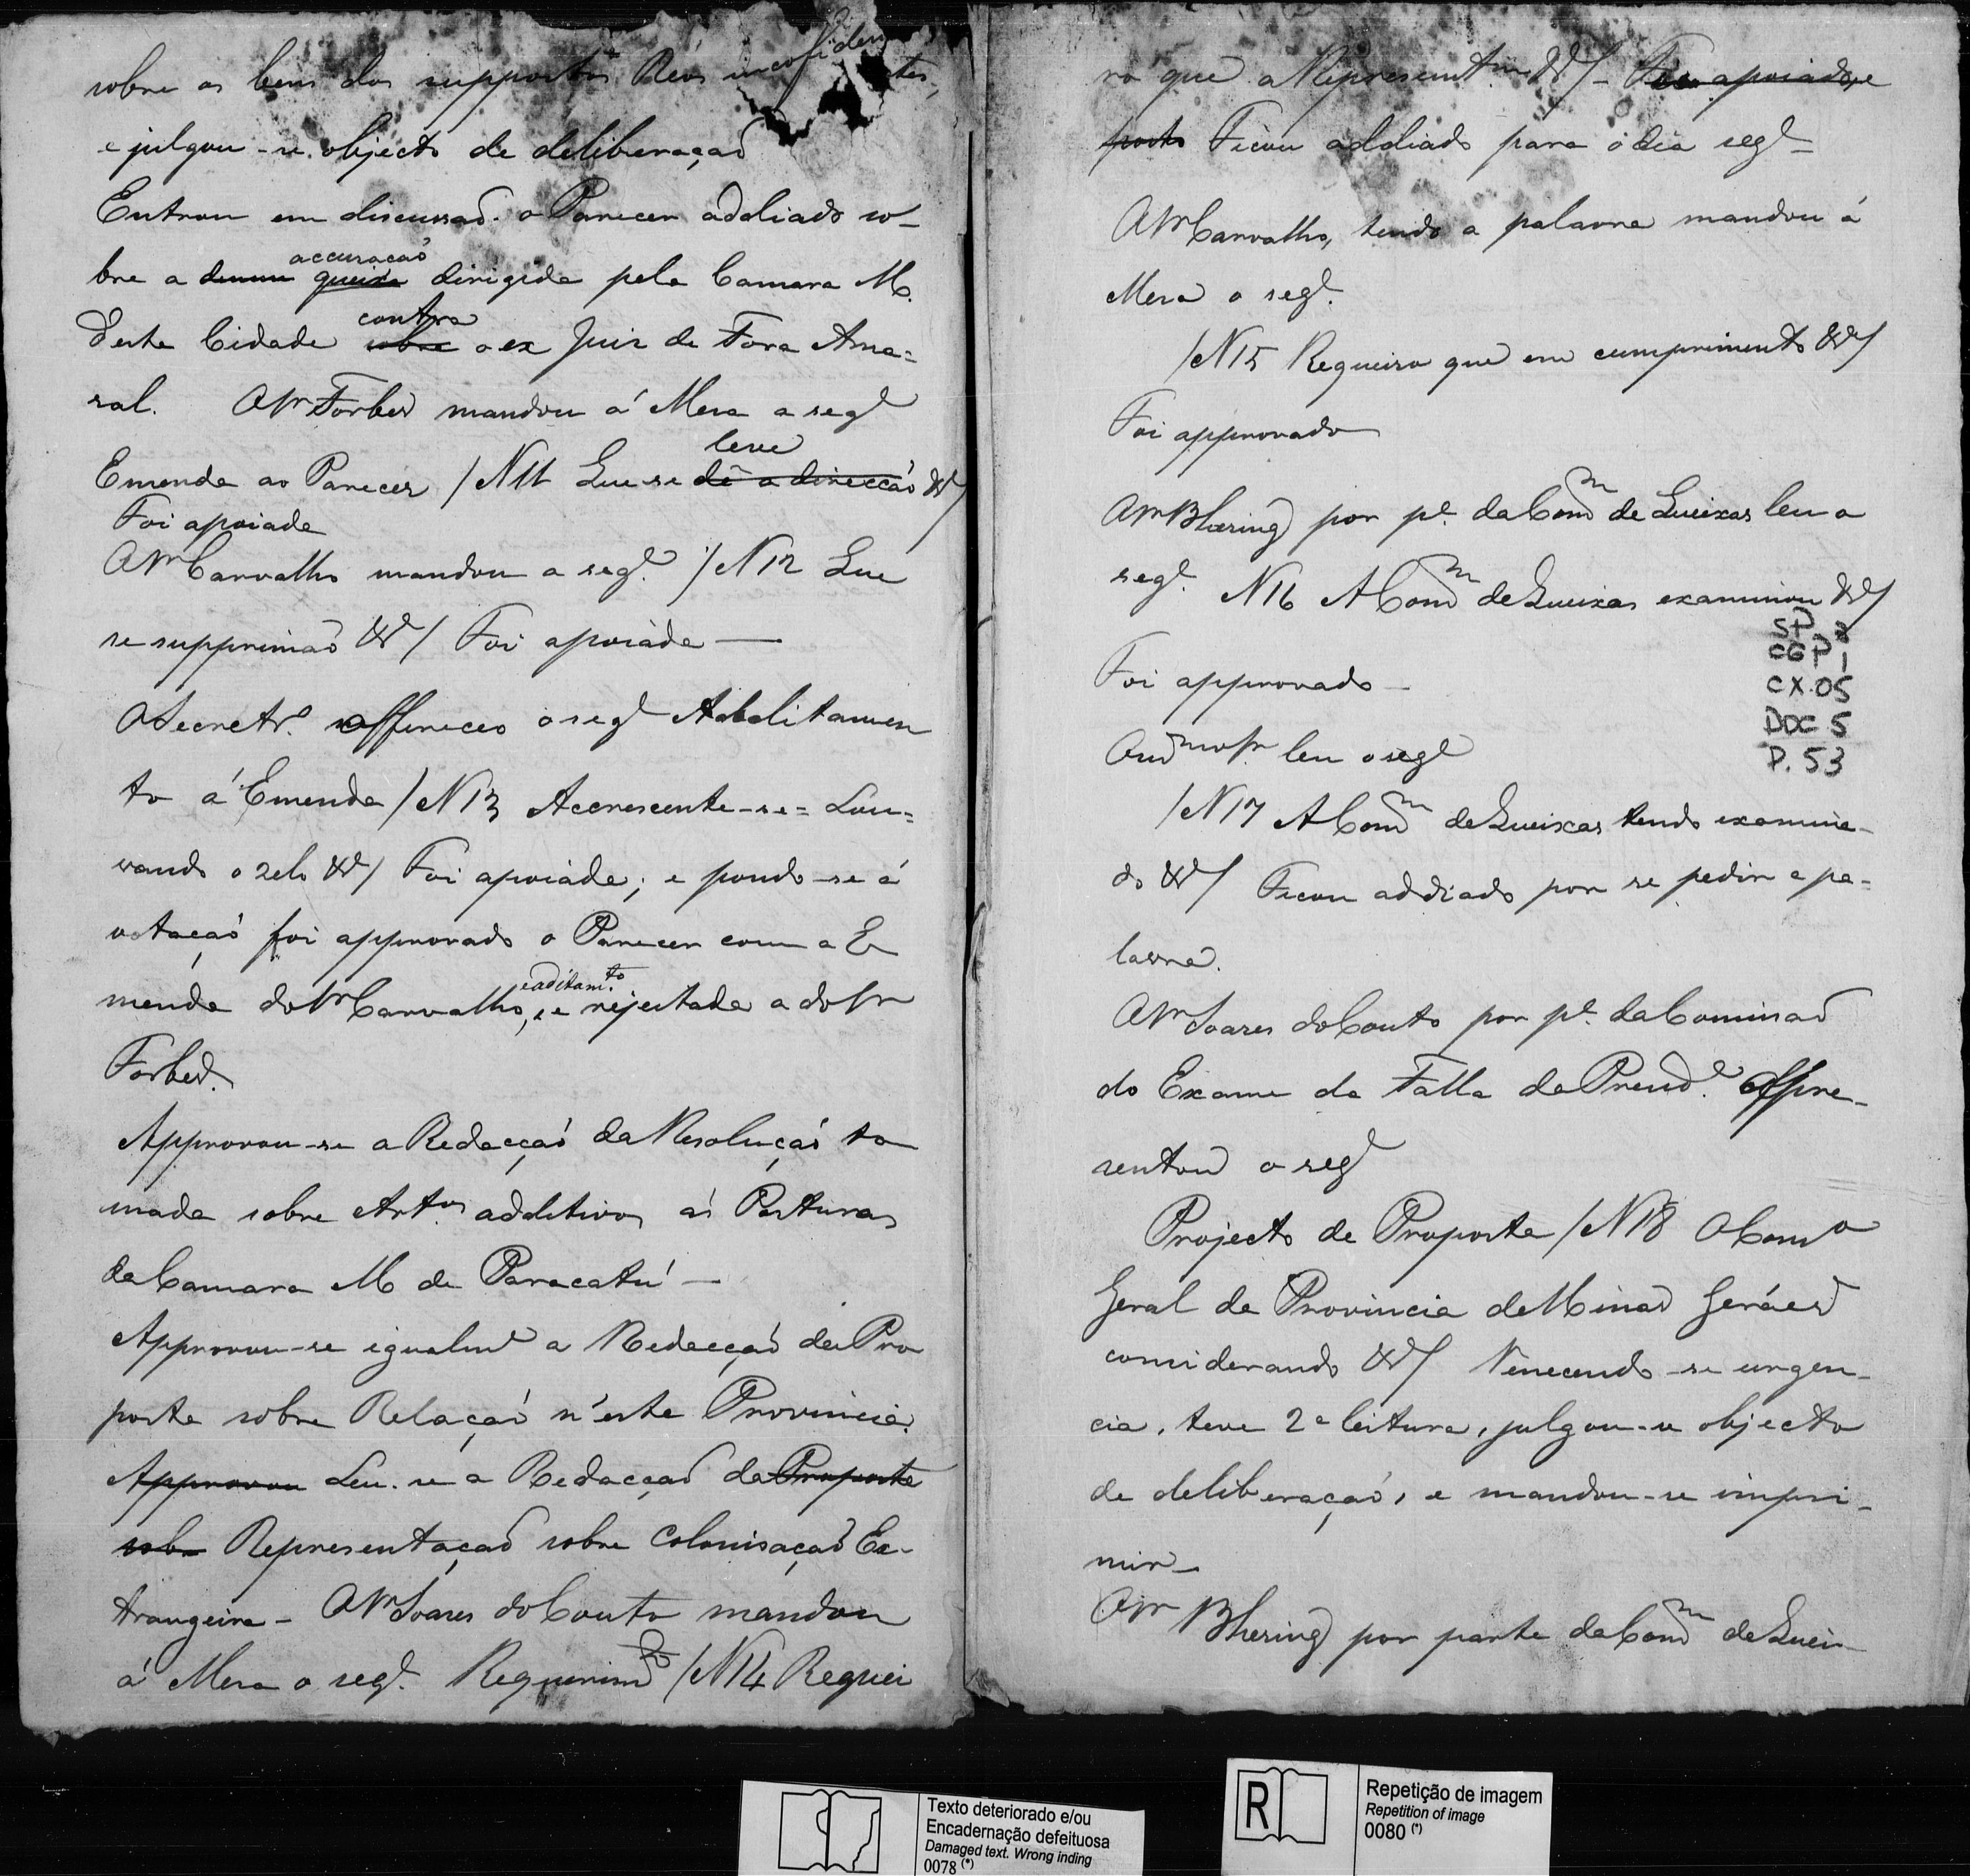 sobre os bens dos suppostos Reos inconfidentes,
e julgou-se objecto de deliberaçaõ
Entrou em discussaõ o Parecer addiado so-
bre a denun queixa accusaçaõ dirigida pela Camara M.
desta Cidade sobre contra o ex Juiz de Fora Ama=
ral. O Sr Forbes mandou á Mesa a segte
Emenda ao Parecer /N 11 Que se dê a direcçaõ leve &a/
Foi apoiada
O Sr Carvalho mandou a segte /N 12 Que
se supprimaõ &a/ Foi apoiada —
O Secretro offereceo o segte Additamen
to á Emenda /N 13 Accrescente-se = Lou=
vando o zelo &a/ Foi apoiada; e pondo-se á
votaçaõ foi approvado o Parecer com a E
menda do Sr Carvalho, e aditamto, e rejeitada a do Sr
Forbes.
Approvou-se a Redacçaõ da Resoluçaõ to
mada sobre Artos additivos ás Posturas
da Camara M de Paracatú —
Approvou-se igualme a Redacçaõ da Pro
posta sobre Relaçaõ n'esta Provincia.
Approvou Leu-se a Redacçaõ da Proposta
sobre Representaçaõ sobre Colonisaçaõ Es-
trangeira - O Sr Soares do Couto mandou
á Mesa o segte Requerimto /N 14 Requei
ro que a Representam &a/ - Foi apoiado, e
posto Ficou addiado para o dia segte
O Sr Carvalho, tendo a palavra mandou á
Mesa o segte
/N 15 Requeiro que em cumprimento &a/
Foi approvado
O Sr Bhering por pe da Comm de Queixas leu o
segte N 16 A Comm de Queixas examinou &a/
SP 2
CGP 1
CX. 05
DOC 5
P. 53
Foi approvado —
O mmo Sr leu o segte
/N 17 A Comm de Queixas tendo examina-
do &a/ Ficou addiado por se pedir a pa=
lavra.
O Sr Soares do Couto por pe da Commissaõ
do Exame da Falla do Preside Apre-
sentou o segte
Projecto de Proposta /N 18 O Conso
Geral da Provincia de Minas Geráes
considerando &a/ Vencendo-se urgen-
cia, teve 2a leitura, julgou-se objecto
de deliberaçaõ, e mandou-se impri-
mir —
O Sr Bhering por parte da Comm de Quei-
Texto deteriorado e/ou
Encadernação defeituosa
Damaged text. Wrong inding
0078 (*)
R
Repetição de imagem
Repetition of image
0080 (*)